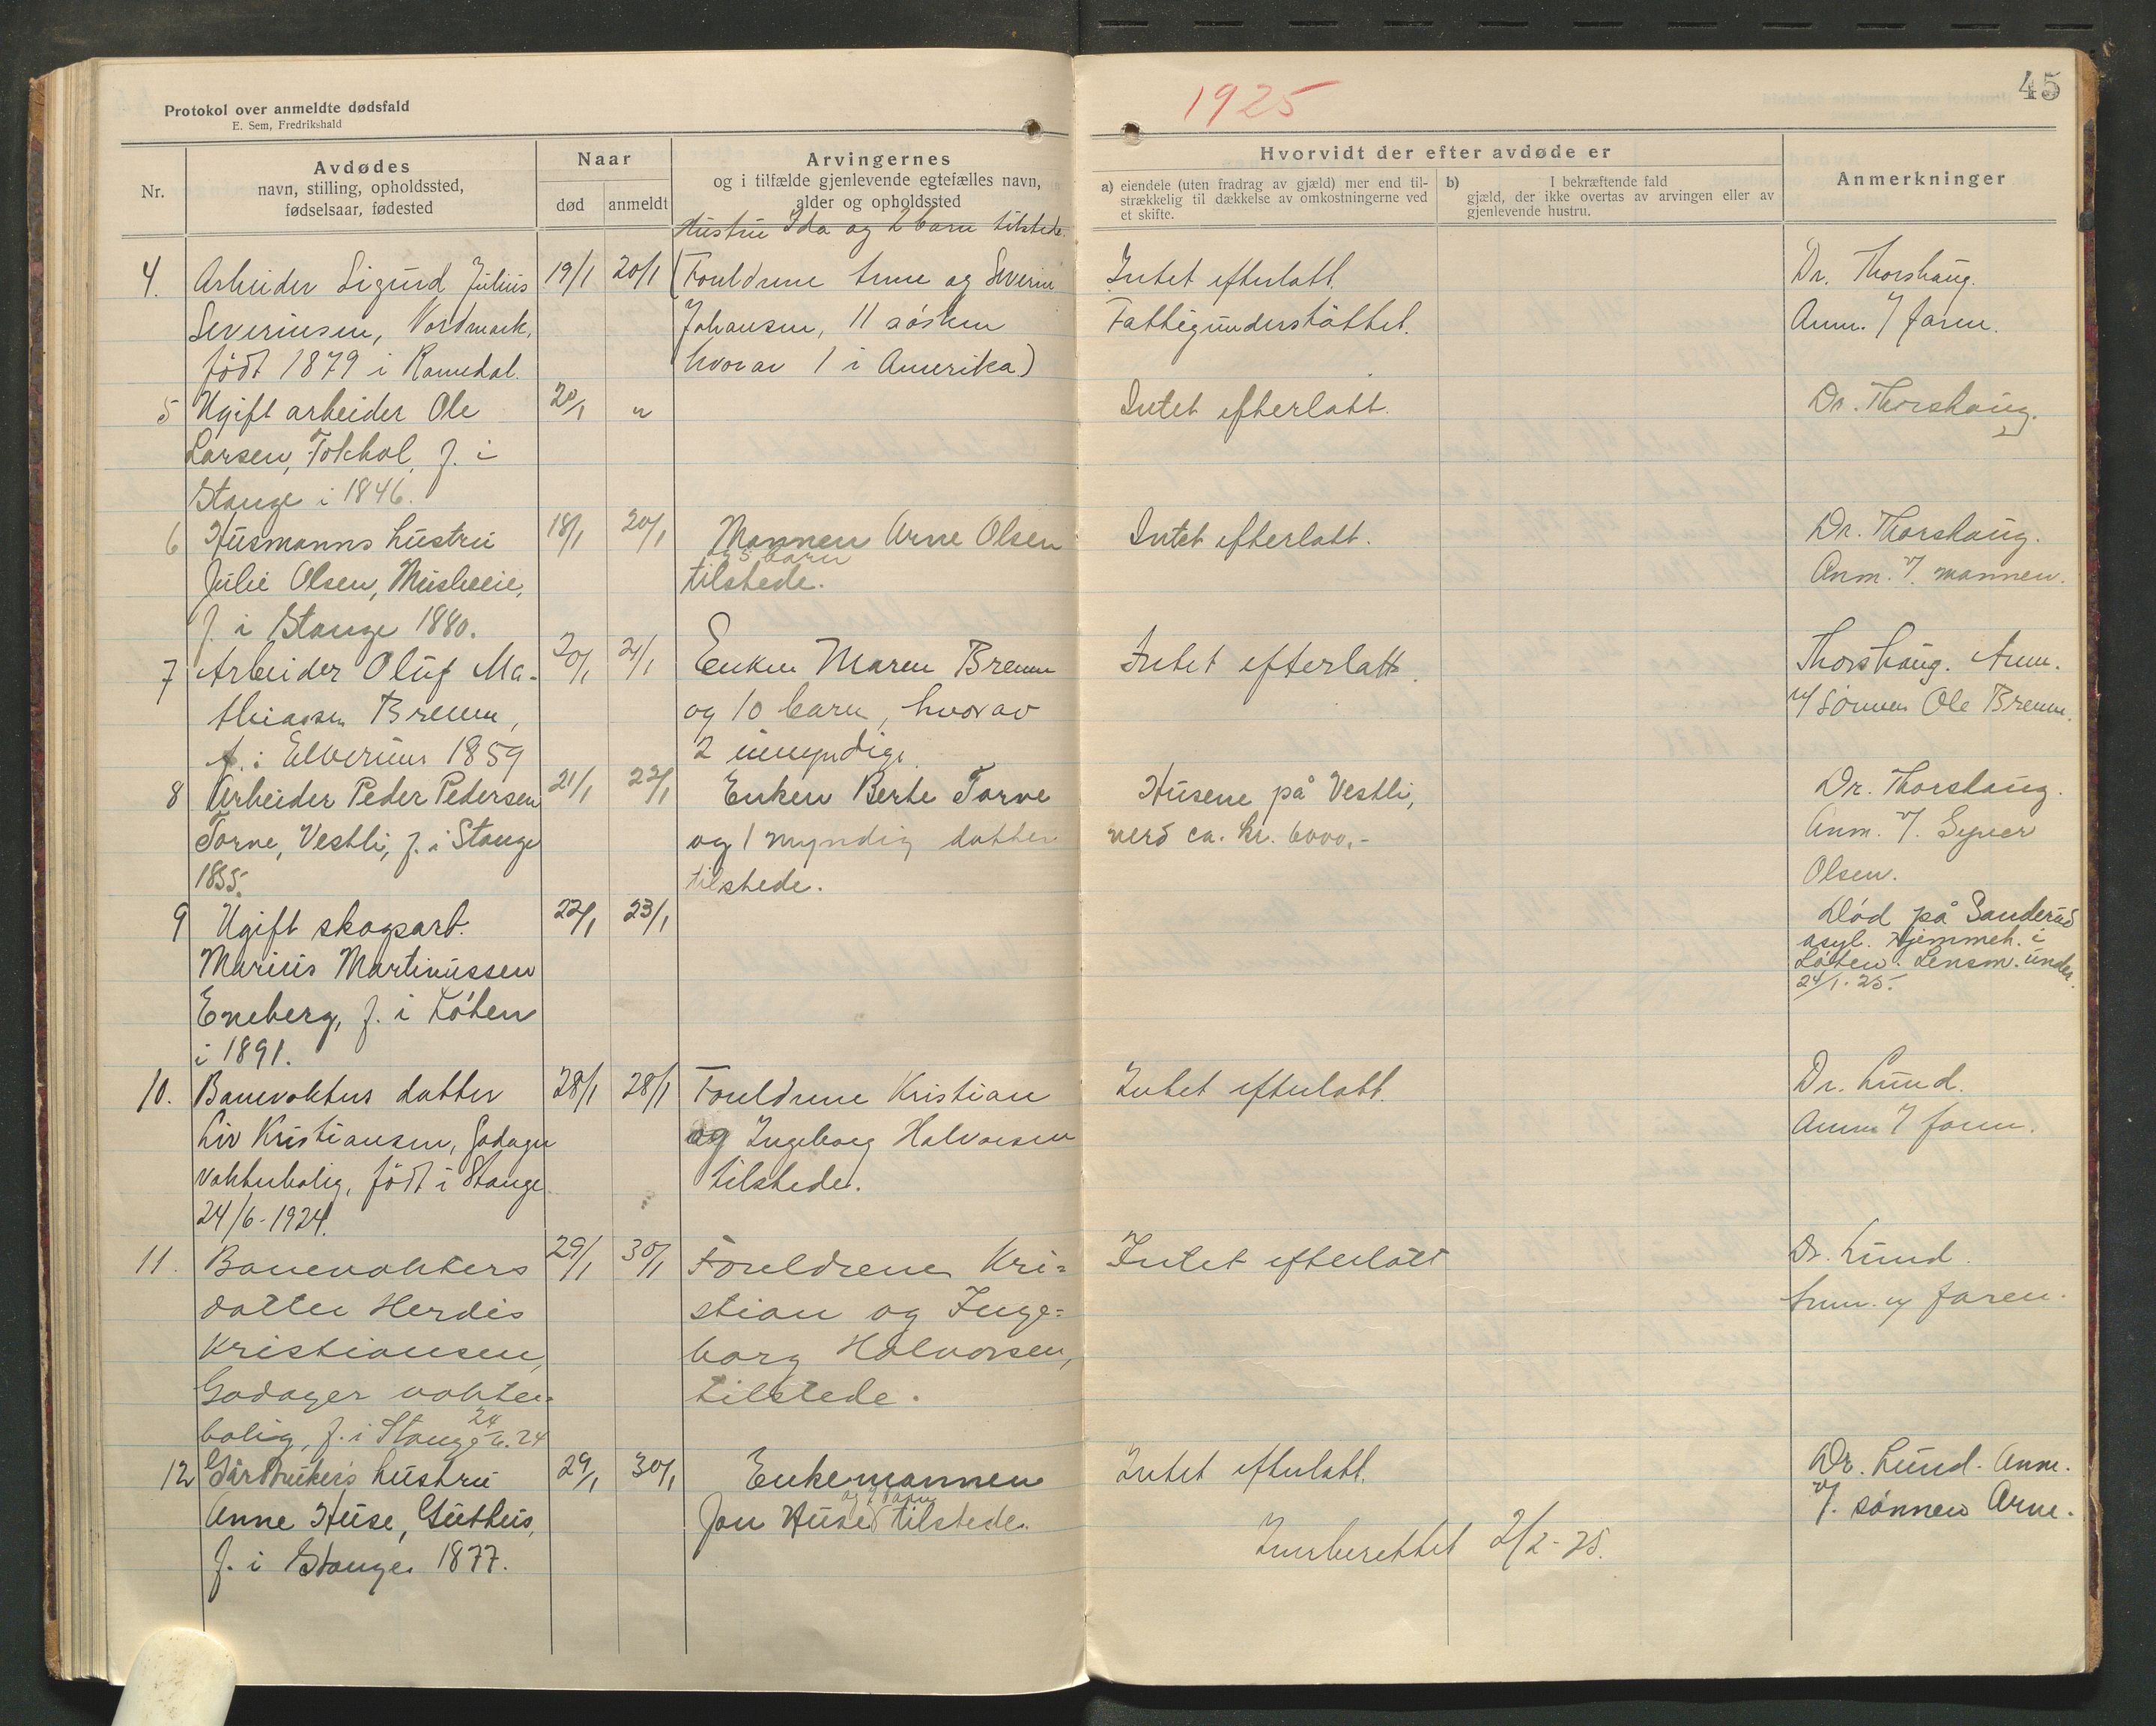 Protokol over anmeldte dødsfald
E. Sem, Fredrikshald
1925
45
Nr.
Avdødes
navn, stilling, opholdssted,
fødselsaar, fødested
Naar
død
anmeldt
Arvingernes
og i tilfælde gjenlevende egtefælles navn,
alder og opholdssted
Hvorvidt der efter avdøde er
a) eiendele (uten fradrag av gjæld) mer end til-
strækkelig til dækkelse av omkostningerne ved
et skifte.
b) I bekræftende fald
gjæld, der ikke overtas av arvingen eller av
gjenlevende hustru.
Anmerkninger
Hustru Ida og 2 barn tilstede.
4. Arbeider Sigurd Julius 19/1 20/1 (Forældrene og Severin Intet efterlatt. Dr. Thorshaug.
Severinsen, Nordmark, Johansen, 11 søsken Fattigunderstøttet. Anm. v/ faren.
født 1879 i Romedal. hvorav 1 i Amerika)
5 Ugift arbeider Ole 20/1 " Intet efterlatt. Dr. Thorshaug.
Larsen, Tokhol, f. i
Stange i 1846.
6 Husmanns hustru 18/1 20/1 Mannen Arne Olsen Intet efterlatt. Dr. Thorshaug.
og 5 barn
Julie Olsen, f. i Stange 1880. tilstede. Anm. v/ mannen.
7 Arbeider Oluf Ma- 20/1 21/1 Enken Maren Brenn Intet efterlatt. Thorshaug. Anm.
thiassen Brenn, og 10 barn, hvorav v/ sønnen Ole Brenn.
f. i Elverum 1859 2 umyndige.
8 Arbeider Peder Pedersen 21/1 22/1 Enken Berte Torve Husene på Vestli, Dr. Thorshaug.
Torve, Vestli, f. i Stange og 1 myndig datter verd ca. kr. 6000,- Anm. v/ Syver
1855. tilstede. Olsen.
9 Ugift skogsarb. 22/1 23/1 Død på Sanderud
Marius Martinussen asyl. Hjemmeh. i
Eneberg, f. i Løten Løten. Lensm. under.
i 1891. 24/1-25.
10. Banevokters datter 28/1 28/1 Foreldrene Kristian Intet efterlatt. Dr. Lund.
Liv Kristiansen, Godager og Ingeborg Halvorsen Anm. v/ faren.
vokterbolig, født i Stange tilstede.
24/6-1924.
11. Banevokters 29/1 30/1 Foreldrene Kri= Intet efterlatt Dr. Lund.
datter Herdis stian og Inge= Anm. v/ faren.
Kristiansen, borg Halvorsen,
Godager vokter= tilstede.
bolig, f. i Stange 24/6.24
12 Gårdbrukers hustru 29/1 30/1 Enkemannen Intet efterlatt. Dr. Lund. Anm.
og 2 barn
Anne Huse, Guthus, Jon Huse tilstede. v/ sønnen Arne.
f. i Stange 1877. Innberettet 2/2-25.